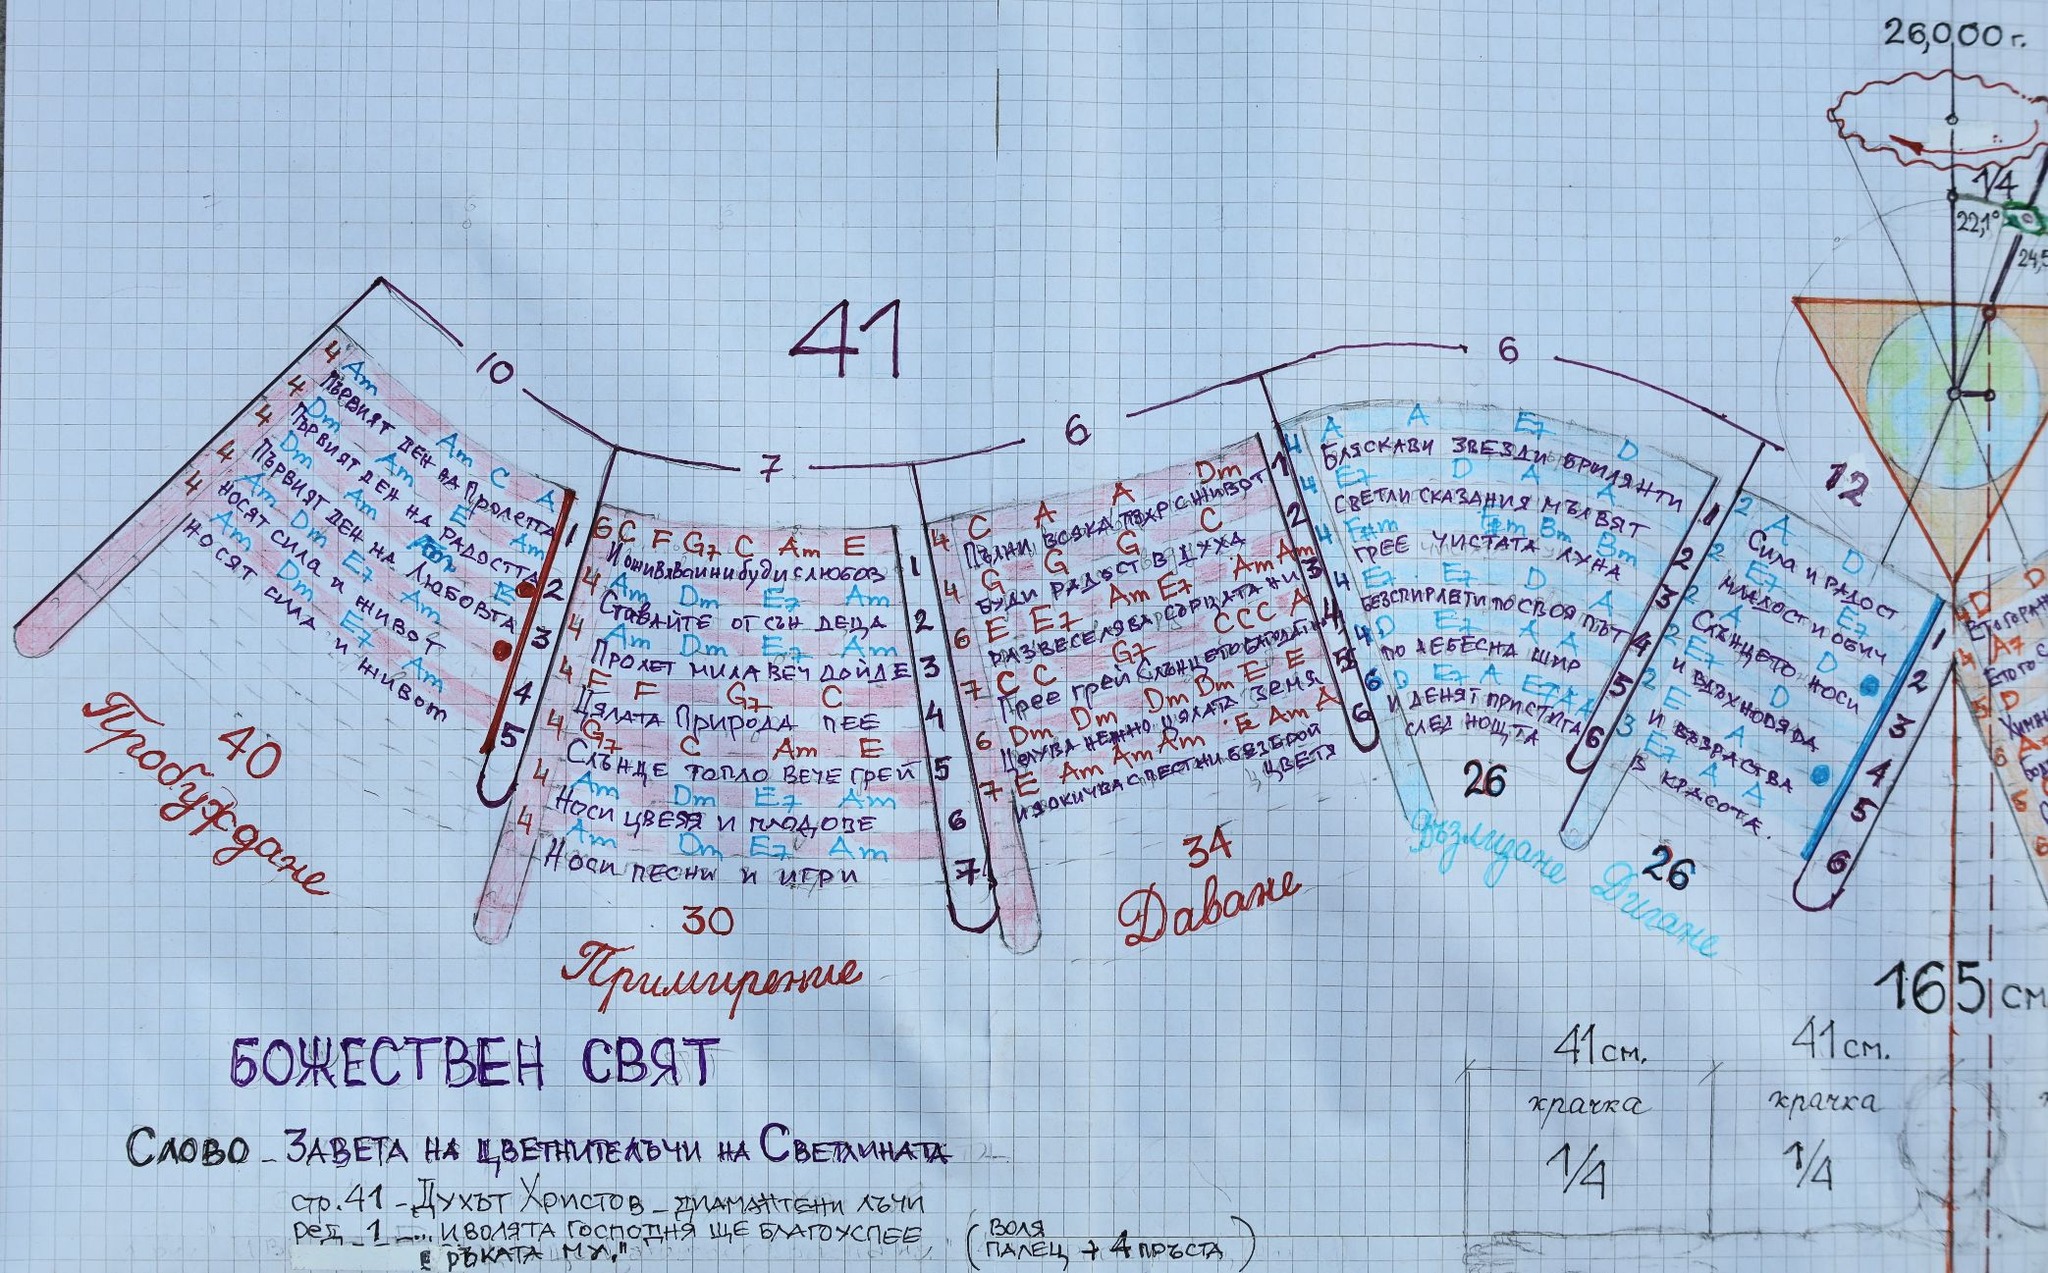 26,000 г.
1/4
22,1°
24,5
41
10
7
6
6
12
4 Am Am C A
Първият ден на Пролетта 1
4 Dm Am E Am
Първият ден на радостта 2
4 Dm Am Am E
Първият ден на Любовта 3
4 Am Dm E7 Am
носят сила и живот 4
4 Am Dm E7 Am
носят сила и живот 5
40
Пробуждане
6 C F G7 C Am E
И оживява и ни буди с любов 1
4 Am Dm E7 Am
Ставайте от сън деца 2
4 Am Dm E7 Am
Пролет мила веч дойде 3
4 F F G7 C
Цялата Природа пее 4
4 G7 C Am E
Слънце топло вече грей 5
4 Am Dm E7 Am
Носи цветя и плодове 6
4 Am Dm E7 Am
Носи песни и игри 7
30
Примирение
4 C A A Dm
Пълни всяка твар с живот 1
4 G G G C
Буди радост в духа 2
6 E E7 Am E7 Am Am
Развеселява сърцата ни 3
7 C C G7 C C C A
Грее грей Слънцето благодатно 4
6 Dm Dm Dm Bm E E
Целува нежно цялата земя 5
7 E Am Am Am E Am A
и я окичва с пестни безброй цветя 6
34
Даване
4 A A E7 D
Бляскави звезди брилянти 1
4 E7 D A A
Светли сказания мълвят 2
4 F#m F#m Bm Bm
Грее чистата луна 3
4 E7 E7 D A
безспирлети по своя път 4
4 D E7 A A
по небесна шир 5
6 D E7 A E7 A A
и денят пристига
след нощта 6
26
Възлизане
2 A D
Сила и радост 1
2 E7 E7
младост и обич 2
2 A D
Слънцето носи 3
2 E7 D
и вдъхновява 4
2 E A
и възраства 5
3 E7 A A
в красота. 6
26
Дигане
D
Его гора
A7
165 см
41 см.
41 см.
крачка
крачка
1/4
1/4
БОЖЕСТВЕН СВЯТ
Слово - Завета на цветните лъчи на Светлината
стр. 41 - Духът Христов - диамантени лъчи
ред 1 - ... и волята Господня ще благоуспее
в ръката му."
(воля
палец + 4 пръста)